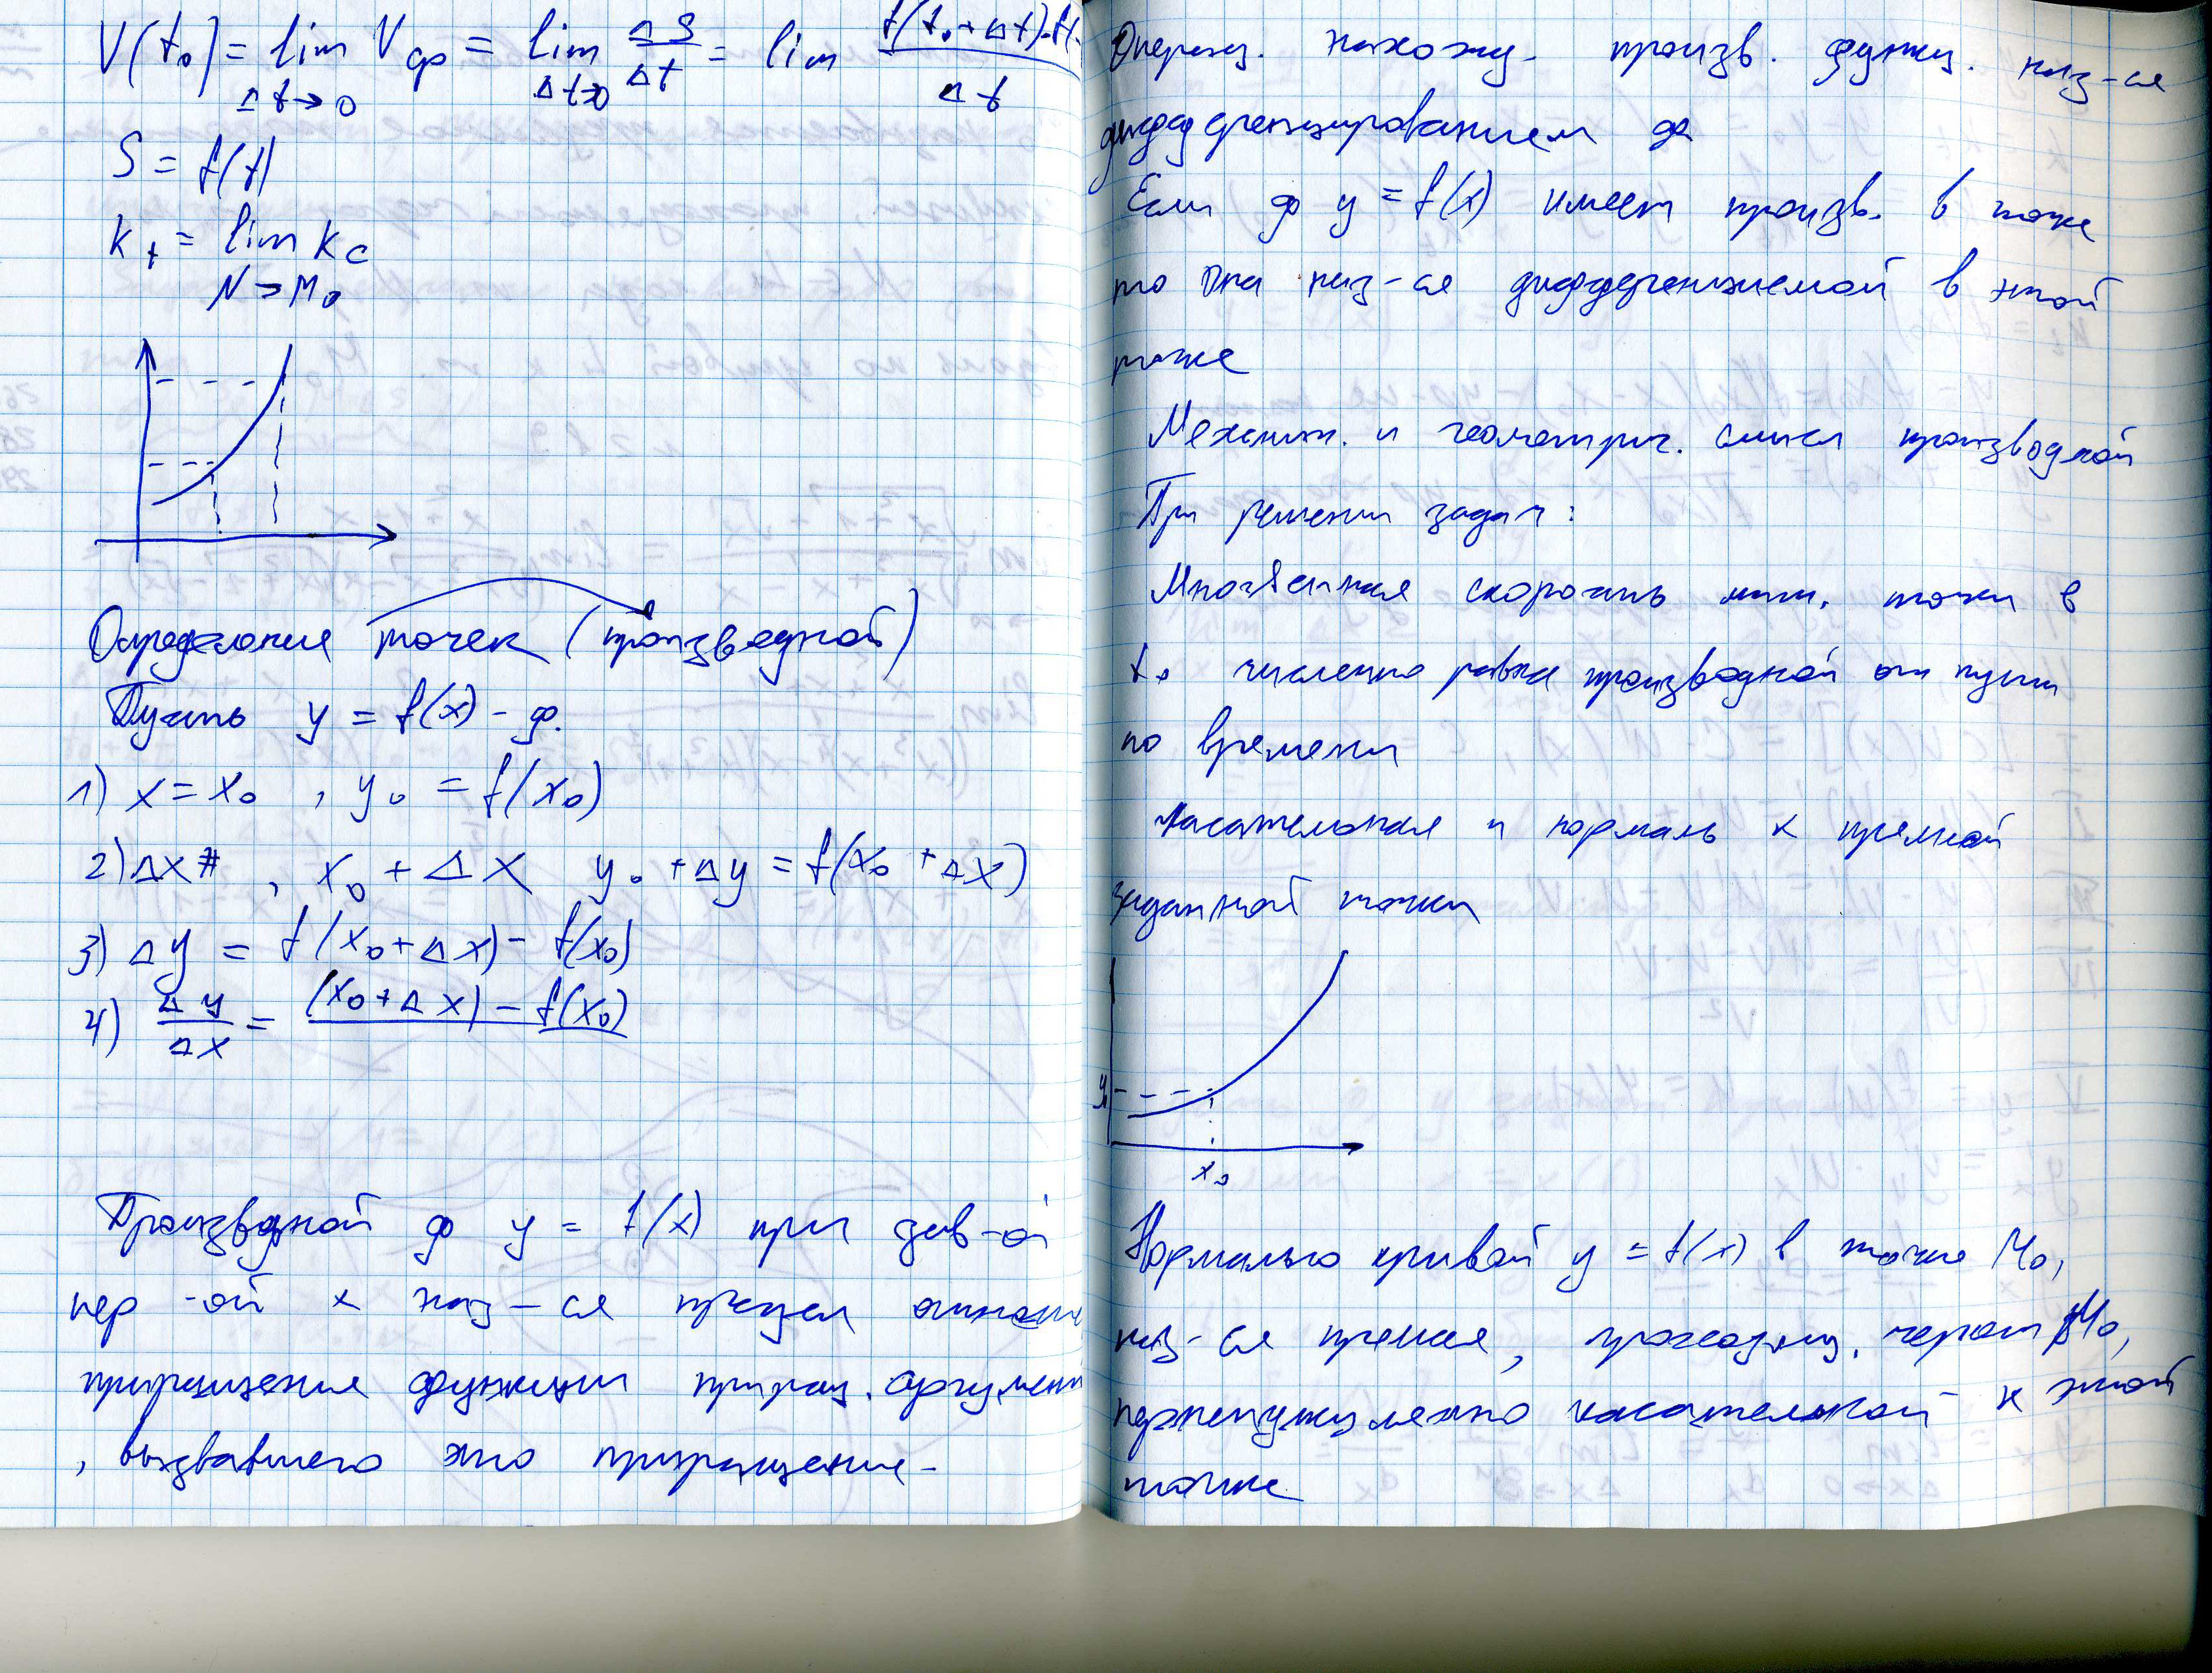 V(t₀) = lim V ср = lim ΔS/Δt = lim f(t₀+Δt)-f(
Δt→0 Δt→0 Δt
S = f(t)
k t = lim k c
N→M₀
Определение точек (производной)
Пусть y = f(x) - ф.
1) x = x₀ , y₀ = f(x₀)
2) Δx ≠ , x₀ + Δx y₀ + Δy = f(x₀ + Δx)
3) Δy = f(x₀+Δx) - f(x₀)
4) Δy/Δx = (x₀+Δx) - f(x₀)
Производной ф y = f(x) при
пер-ой x наз-ся предел отношен
приращения функции приращ. аргумен
, вызвавшего это приращение-
Операц. нахожд. произв. функц. наз-ся
дифференцированием ф
Если ф y = f(x) имеет произв. в точке
то она наз-ся дифференцием­ой в этой
точке
Механич. и геометрич. смысл производной
При решении задач:
Мгновенная скорость мат. точки в
t₀ численно равна производной от пути
по времени
Касательная и нормаль к прямой
заданной точки
y₀
x₀
Нормалью кривой y = f(x) в точке M₀,
наз-ся прямая, проходящ. через M₀,
перпендикулярно касательной к этой
точке